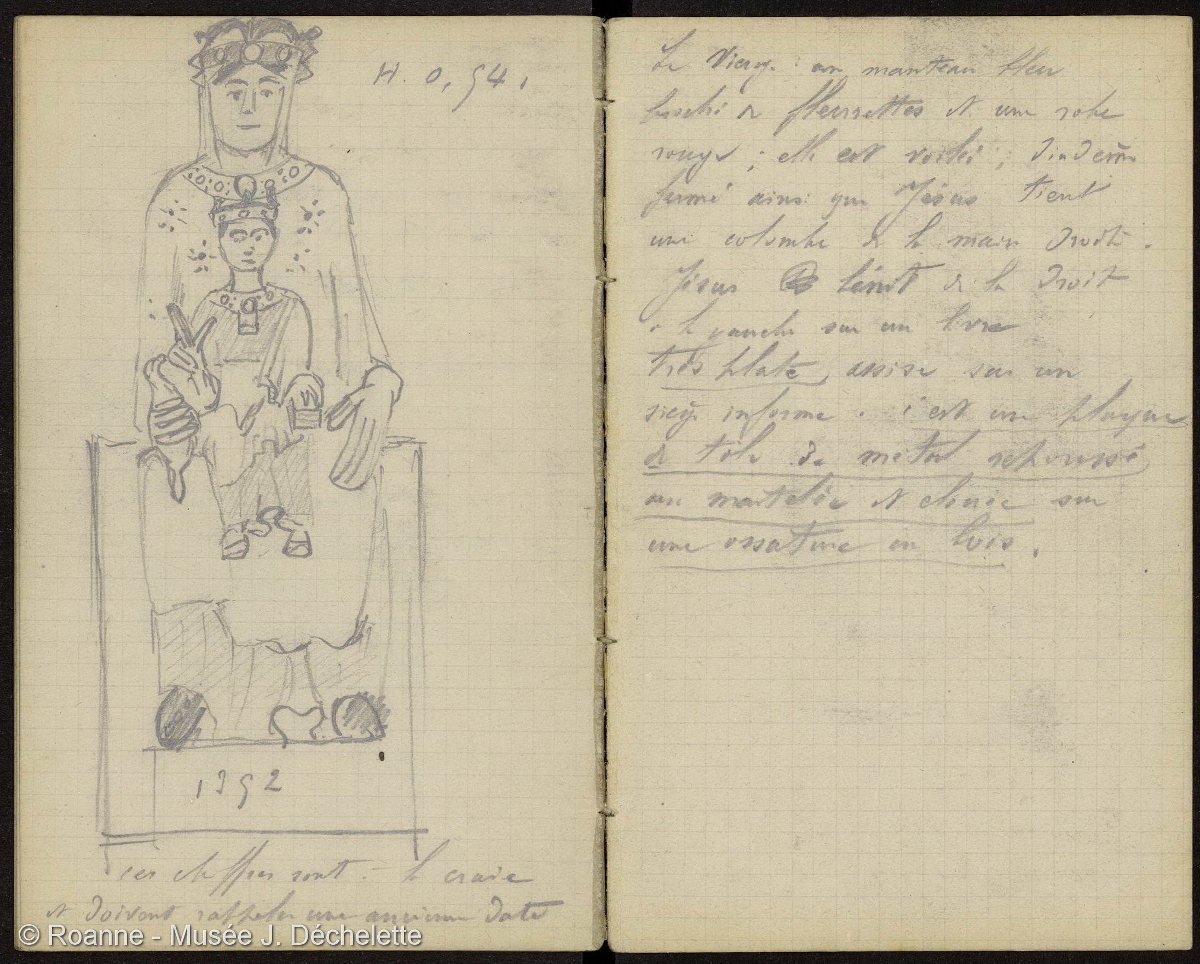 H. 0,54.
1352
ces chiffres sont à la craie
et doivent rappeler une ancienne date
La Vierge : un manteau bleu
de fleurettes et une robe
rouge ; elle est voilée ; diadème
fermé ainsi que Jésus tient
une colombe de la main droite.
Jésus bénit de la droite
la gauche sur un livre
très plate, assise sur un
siège informe. c'est une plaque
de tole de métal repoussé
au et clouée sur
une ossature en bois.
© Roanne - Musée J. Déchelette